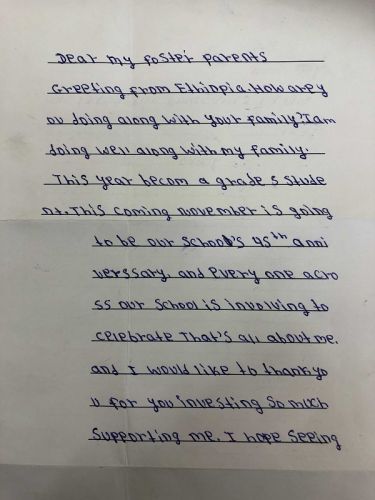 Dear my foster parents
Greeting from Ethiopia. How are y
ou doing along with your family? I am
doing well along with my family.
This year becom a grade 5 stude
nt. This coming november is going
to be our school's 45th anni
verssary, and every one acro
ss our school is involving to
celebrate That's all about me.
and I would like to thank yo
u for you investing so much
Supporting me. I hope seeing